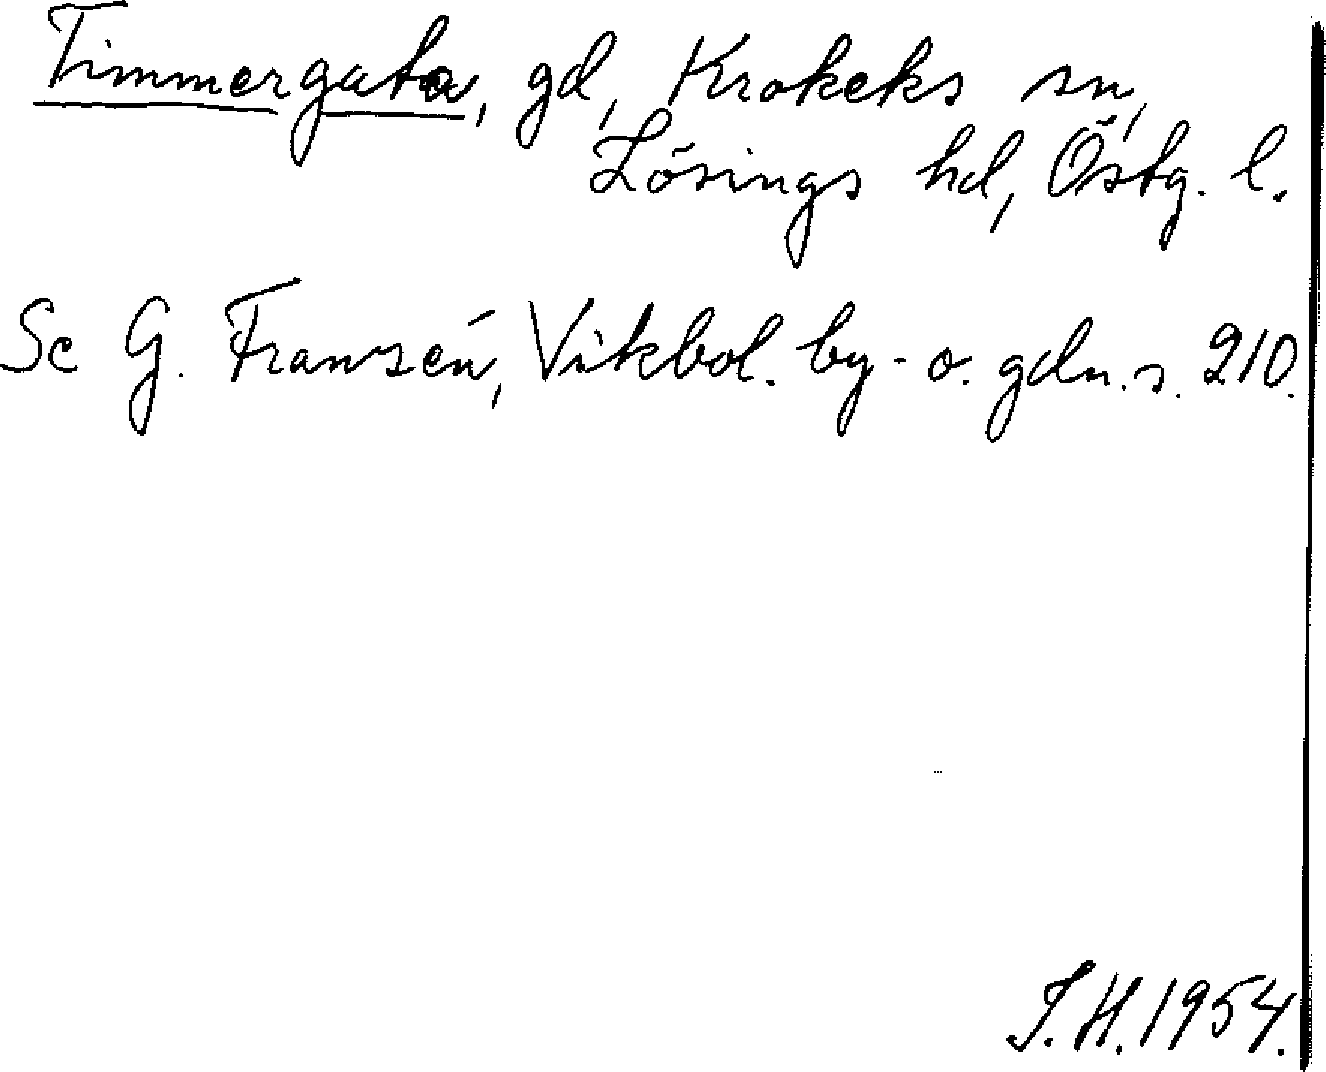 Timmergata, gd, Krokeks sn,
Lösings hd, Östg. l.
Se G. Franzén, Vikbol. by- o. gdn. s. 210.
I.H. 1954.